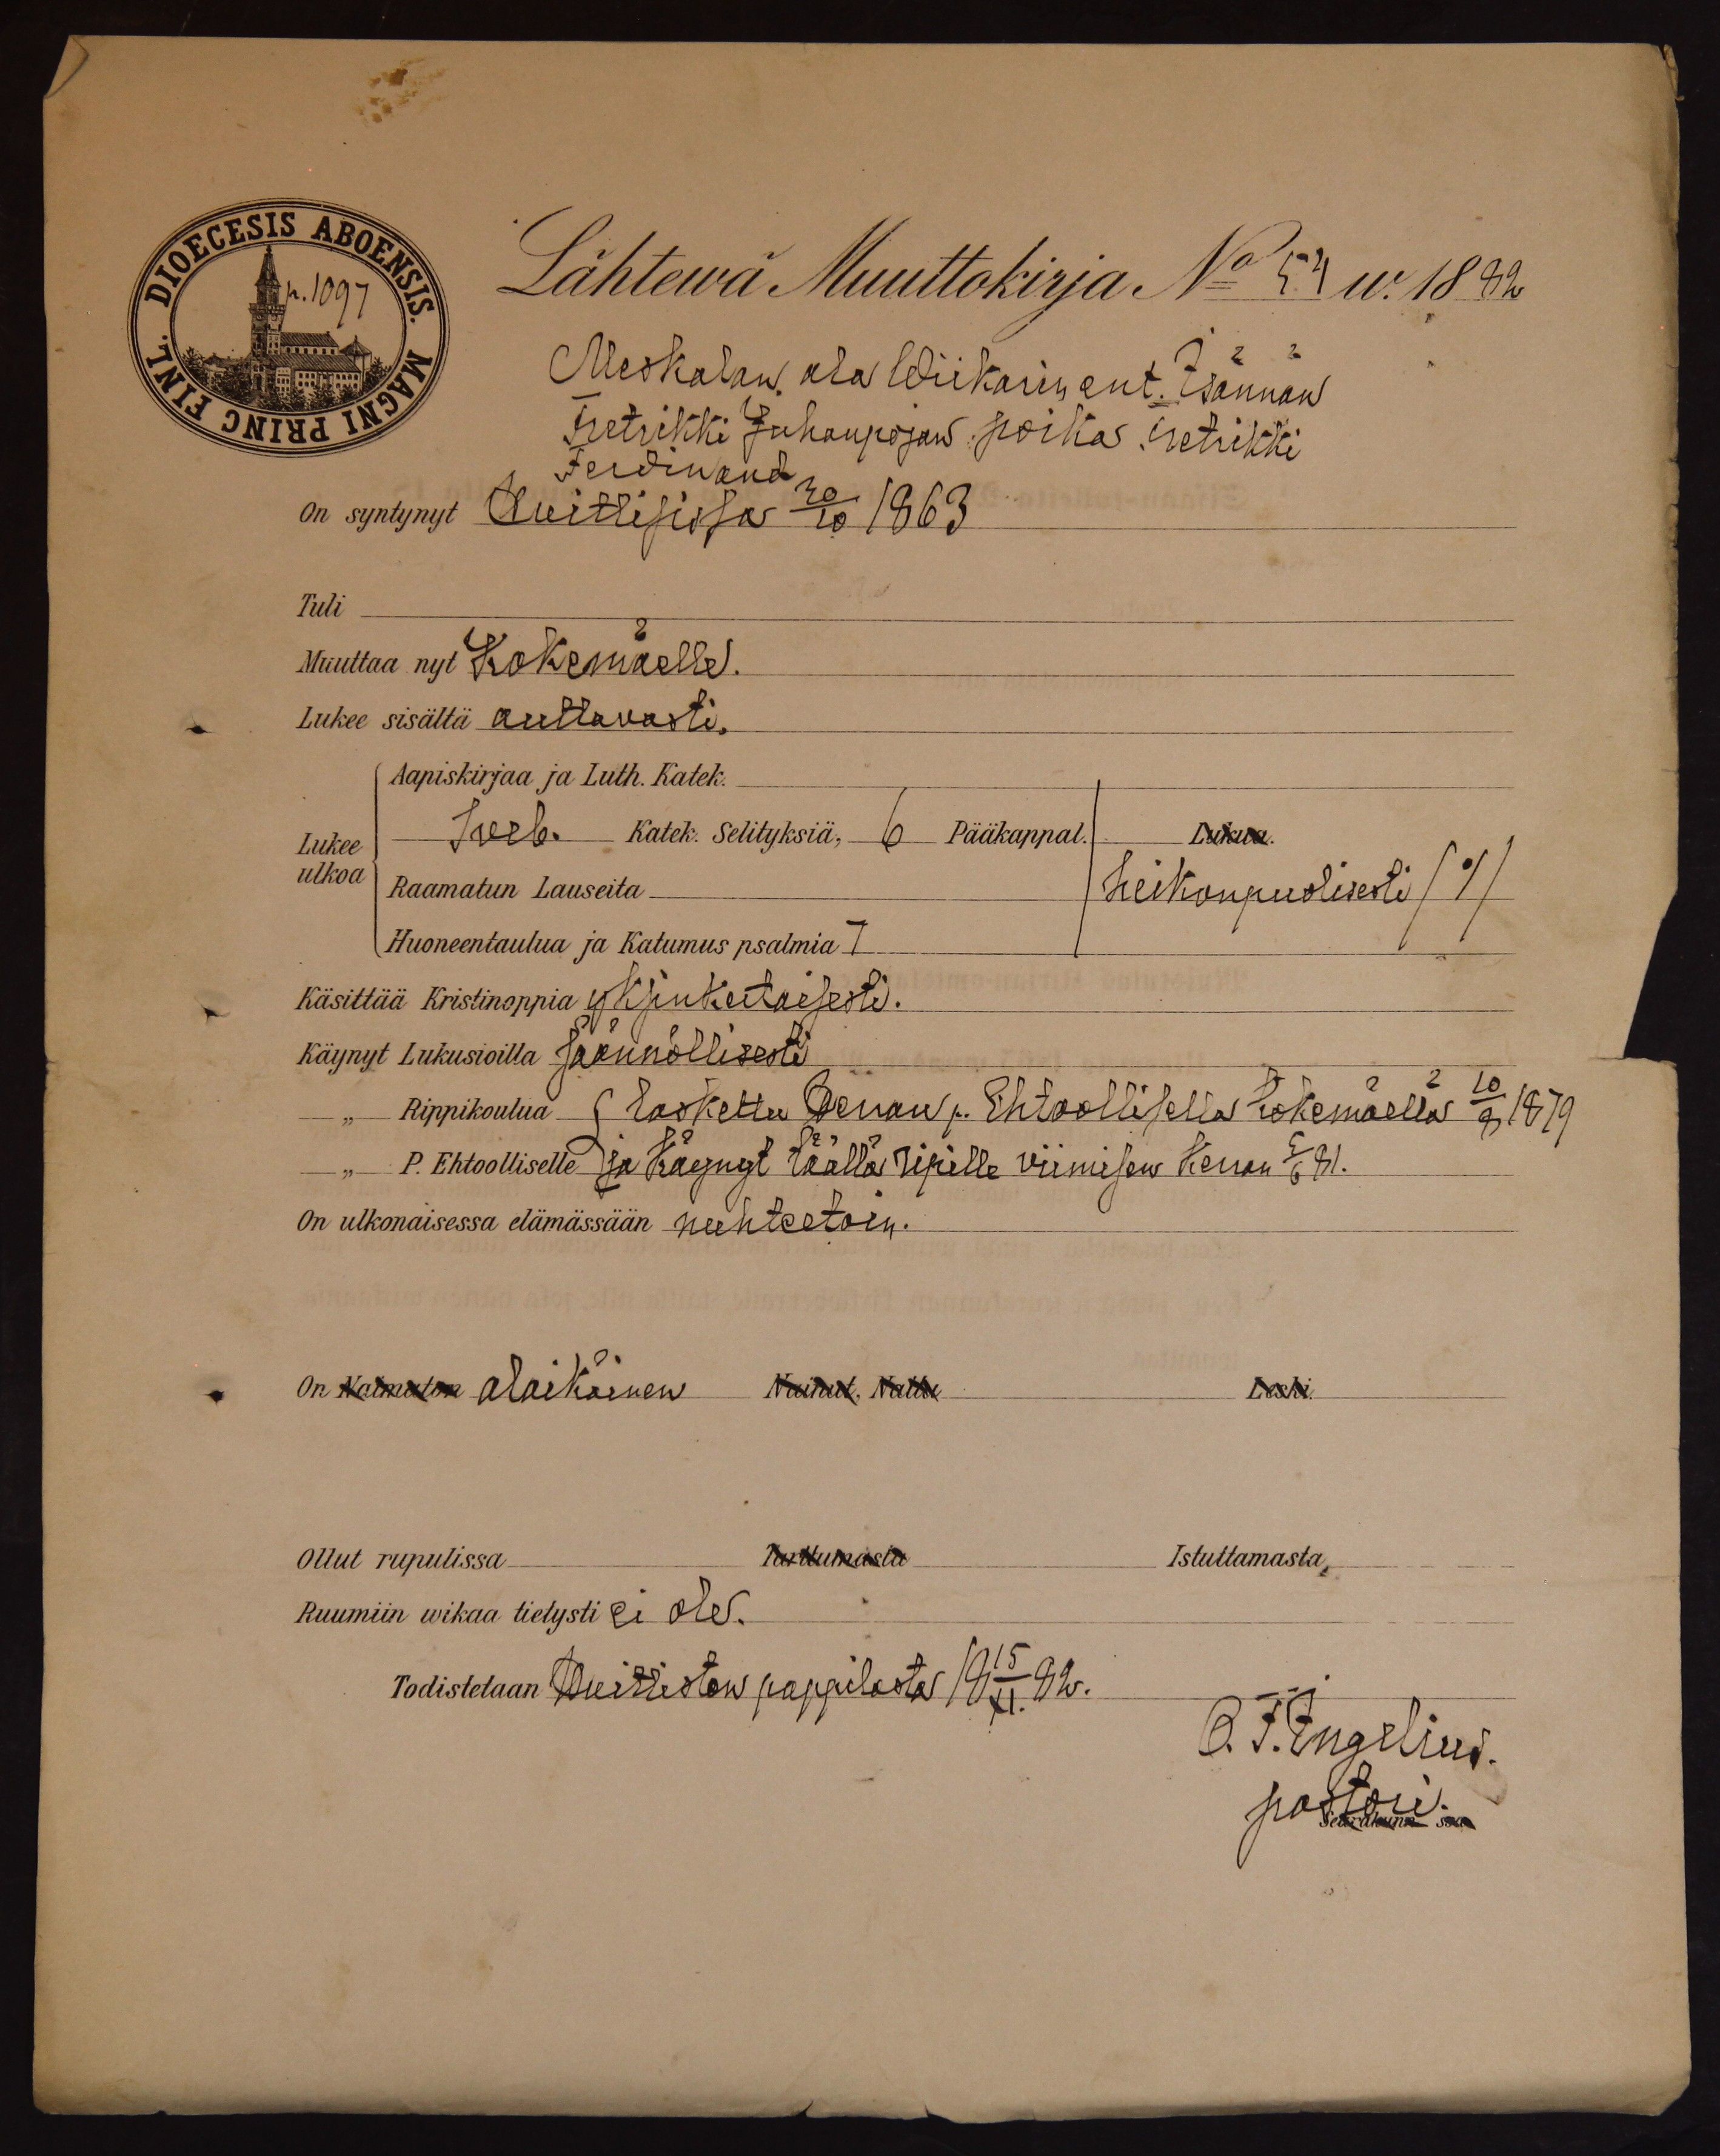 DIOECESIS ABOENSIS. MAGNI PRINC FINL.
p. 1097
Lähtewä Muuttokirja No 54 w. 1882
Meskalan, ala Wiikarin ent. Isännän
Fretrikki Juhanpojan poika Fretrikki
Ferdinand
On syntynyt Huittisissa 30/10 1863
Tuli
Muuttaa nyt Kokemäelle.
Lukee sisältä auttavasti.
Lukee ulkoa
Aapiskirjaa ja Luth. Katek.
Sveb. Katek. Selityksiä, 6 Pääkappal. Lukua.
Raamatun Lauseita heikonpuolisesti /%/
Huoneentaulua ja Katumus psalmia 7
Käsittää Kristinoppia yksinkertaisesti.
Käynyt Lukusioilla säännöllisesti
„ Rippikoulua laskettu Herran p. Ehtoollisella Kokemäellä 10/9 1879
„ P. Ehtoolliselle ja käynyt täällä ripille viimisen kerran 5/6 81.
On ulkonaisessa elämässään nuhteetoin.
On Naimaton alaikäinen Nainut. Naitu Leski.
Ollut rupulissa Tarttumasta Istuttamasta,
Ruumiin wikaa tietysti ei ole.
Todistetaan Huittisten pappilasta 18 15/XI. 82.
O. F. Engelius.
pastori.
Seurakunn ssa